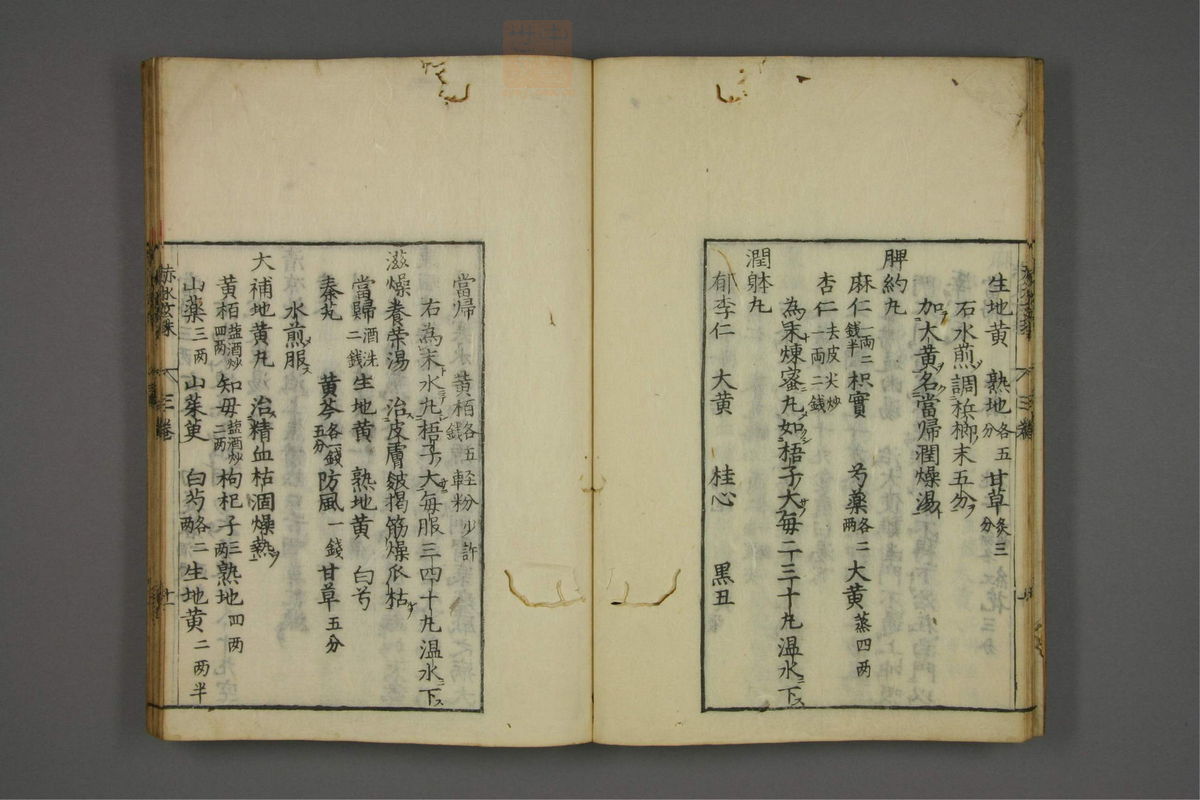 生地黄　熟地各五分　甘草炙三分
右水煎調梹榔末五分ヲ
加大黄名當帰潤燥湯
脾約丸
麻仁一両二銭半　枳實　芍藥各二両　大黄蒸四两
杏仁去皮尖炒一両二銭
為末煉蜜丸如梧子大毎二三十丸温水下ス
潤躰丸
郁李仁　大黄　桂心　黒丑
當帰　黄栢各五銭　軽粉少許
右為末水丸梧子大毎服三四十丸温水下ス
滋燥養荣湯　治皮膚皴掲筋燥爪枯
當歸酒洗二銭　生地黄　熟地黄　白芍
秦艽　黄芩各一銭五分　防風一錢　甘草五分
水煎服ス
大補地黄丸　治精血枯涸燥熱
黄栢盐酒炒四两　知毋盐酒炒二两　枸杞子三两　熟地四两
山藥三两　山茱萸　白芍各二两　生地黄二两半
赤水玄珠　三卷　十一